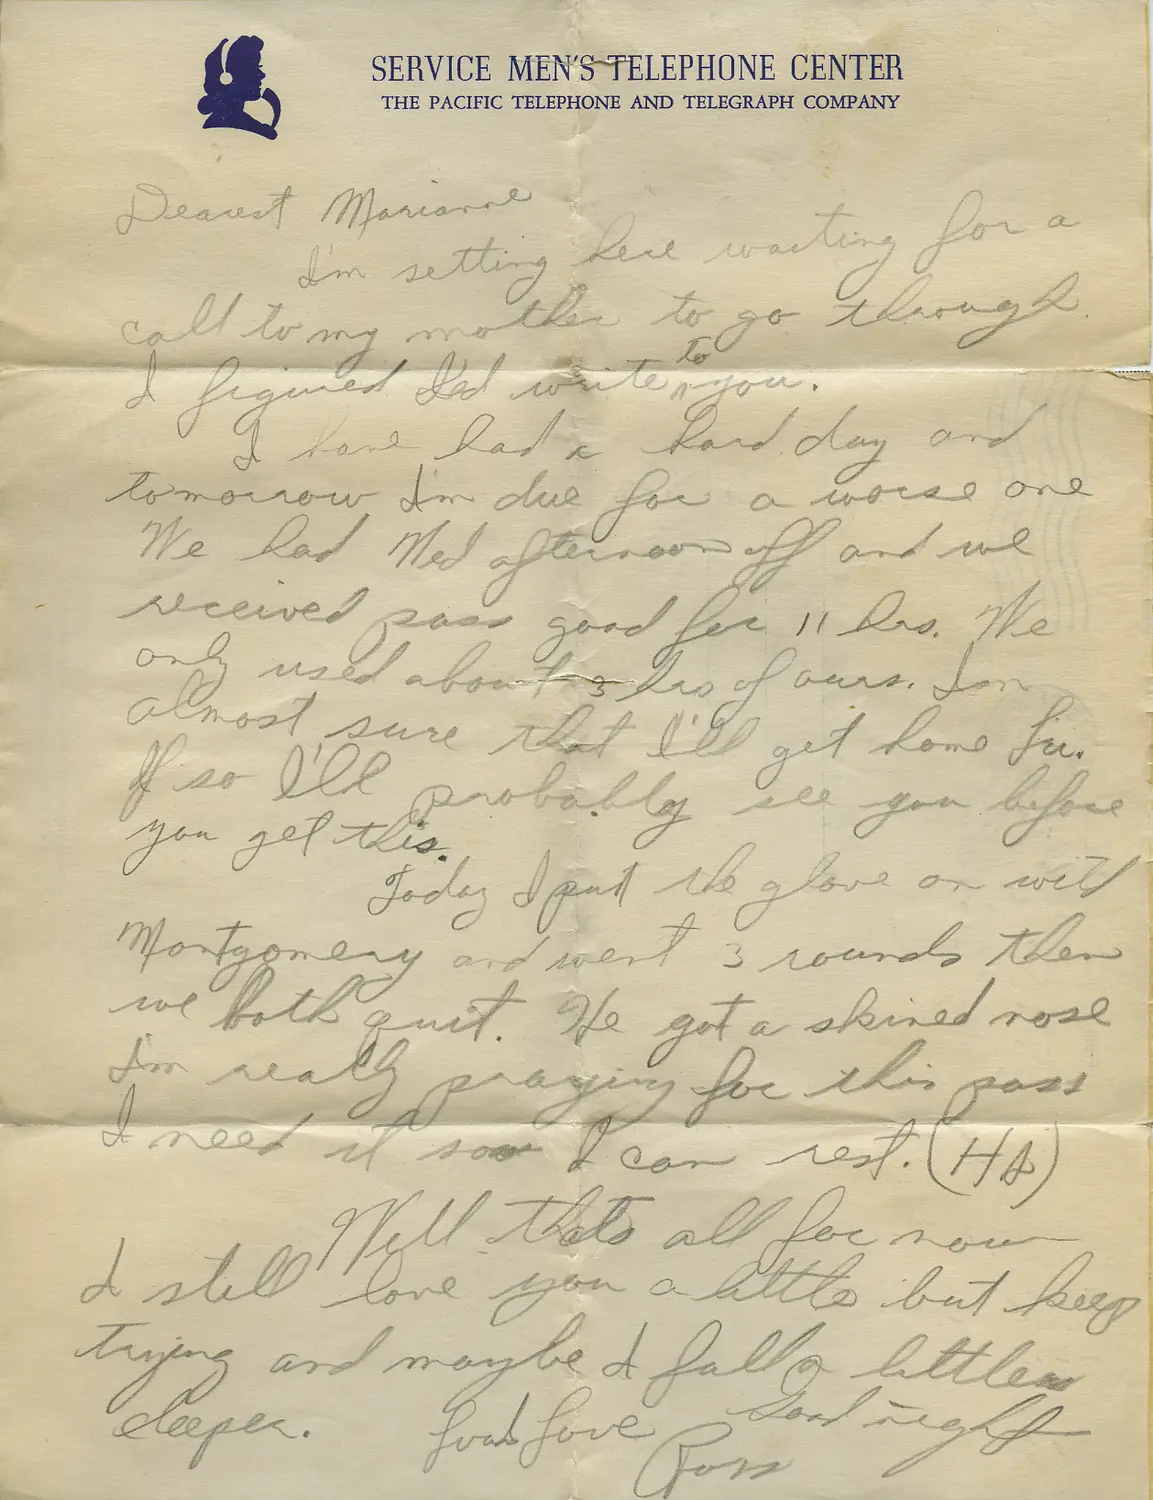 SERVICE MEN'S TELEPHONE CENTER
THE PACIFIC TELEPHONE AND TELEGRAPH COMPANY
Dearest Marianne
I'm setting here waiting for a
call to my mother to go through.
I figured I'd write to you.
I have had a hard day and
tomorrow I'm due for a worse one
We had Wed afternoon off and we
received pass good for 11 hrs. We
only used about 3 hrs of ours. Im
almost sure that I'll get home Fri.
If so I'll probably see you before
you get this.
Today I put the glove on with
Montgomery and went 3 rounds then
we both quit. He got a skined nose
I'm really praying for this pass
I need it so I can rest. (HA)
Well thats all for now
I still love you a little but keep
trying and maybe I fall a little
deeper. Good night
Love
Ross